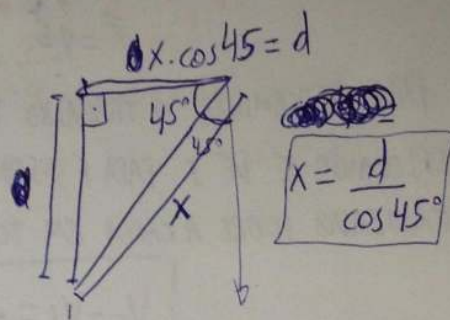 x·cos45 = d
45°
45°
x
x = d / cos45°